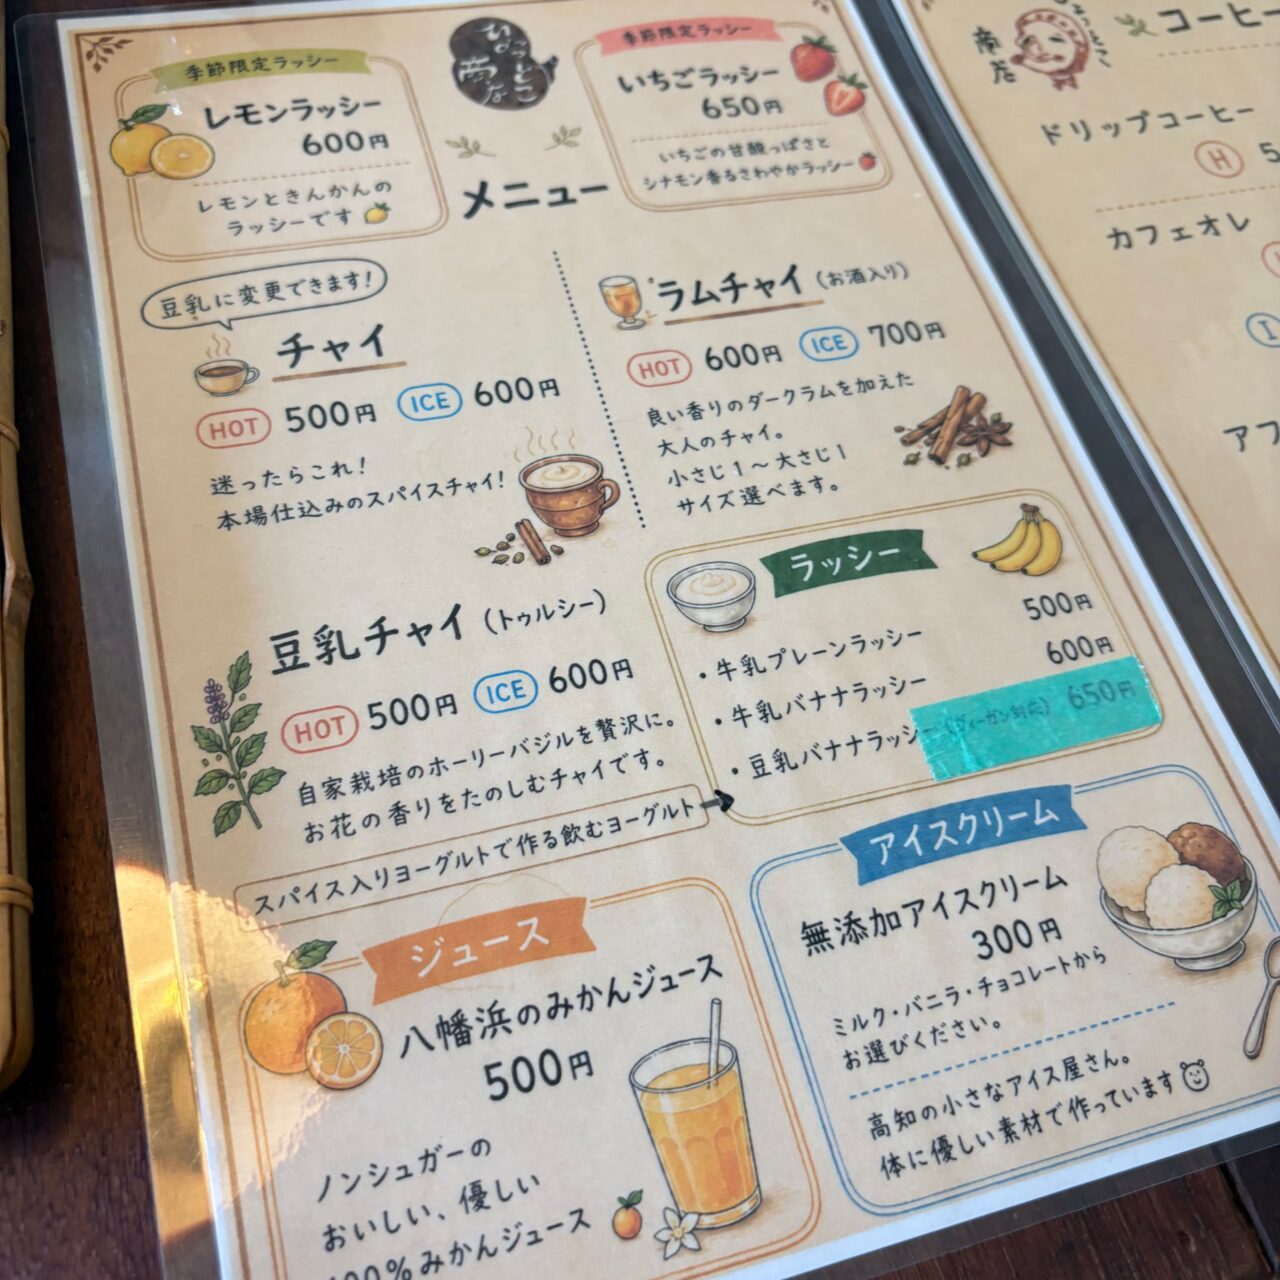 季節限定ラッシー
レモンラッシー
600円
レモンときんかんの
ラッシーです
季節限定ラッシー
いちごラッシー
650円
いちごの甘酸っぱさと
シナモン香るさわやかラッシー
メニュー
豆乳に変更できます!
チャイ
HOT 500円 ICE 600円
迷ったらこれ!
本場仕込みのスパイスチャイ!
ラムチャイ(お酒入り)
HOT 600円 ICE 700円
良い香りのダークラムを加えた
大人のチャイ。
小さじ1〜大さじ1
サイズ選べます。
豆乳チャイ(トゥルシー)
HOT 500円 ICE 600円
自家栽培のホーリーバジルを贅沢に。
お花の香りをたのしむチャイです。
スパイス入りヨーグルトで作る飲むヨーグルト
ラッシー
・牛乳プレーンラッシー 500円
・牛乳バナナラッシー 600円
・豆乳バナナラッシー(ヴィーガン対応) 650円
ジュース
八幡浜のみかんジュース
500円
ノンシュガーの
おいしい、優しい
100%みかんジュース
アイスクリーム
無添加アイスクリーム
300円
ミルク・バニラ・チョコレートから
お選びください。
高知の小さなアイス屋さん。
体に優しい素材で作っています
商店
コーヒー
ドリップコーヒー
H 5
カフェオレ
アフ